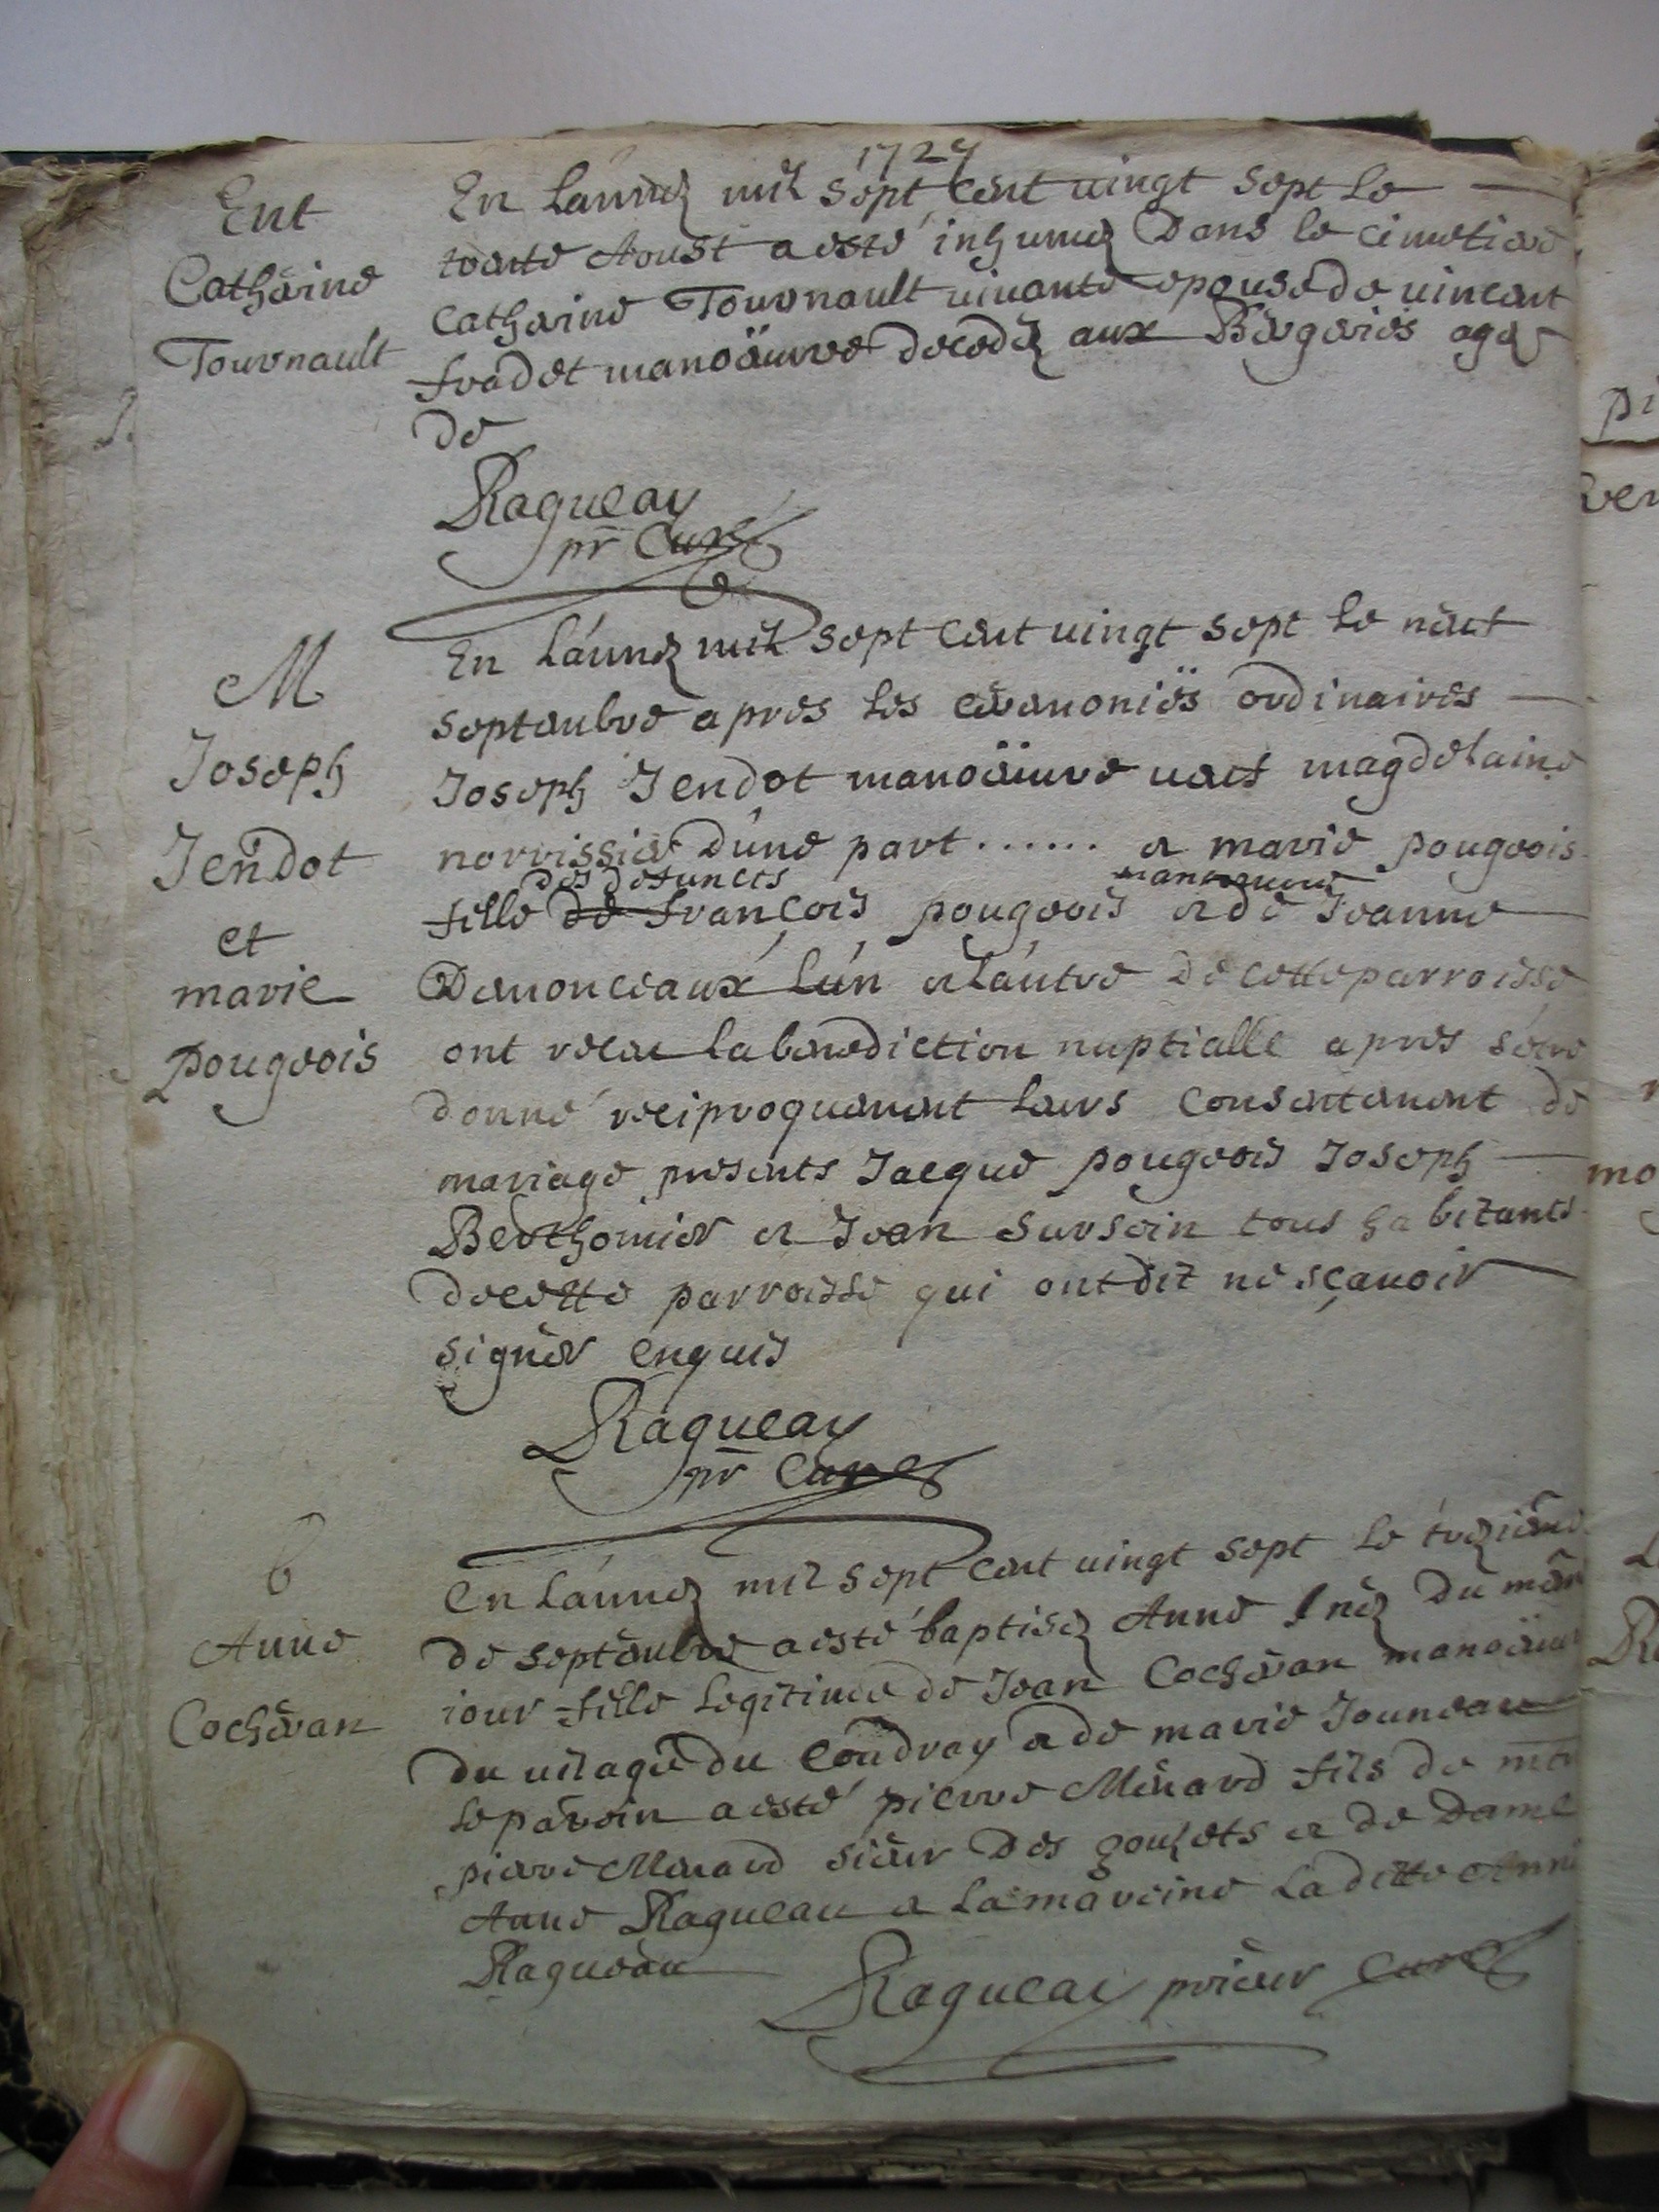 1727
Ent
Catherine
Tournault
En l'annéz mil sept cent vingt sept le
trente Aoust a esté inhuméz Dans le cimetiere
Catherine Tournault vivante epouse de vincent
fradet manoeuvre decedéz aux Bergeries agéz
de
Raqueau
pr Curé
M
Joseph
Jendot
et
marie
pougeois
En l'annéz mil sept cent vingt sept le neuf
septembre apres les ceremoniës ordinaires
Joseph Jendot manoeuvre veuf magdelaine
norrissier d'une part ...... et marie pougeois
des defuncts manoeuvre
fille de francois pougeois et de Jeanne
Demonceaux l'un et l'autre de cette parroisse
ont receu la benediction nuptialle apres s'etre
donné reciproquement leurs consentement de
mariage presents Jacque pougeois Joseph
Berthomier et Jean sursin tous habitants
de cette parroisse qui ont dit ne sçavoir
signer enquis
Raqueau
pr Curé
b
Anne
Cocheran
En l'annéz mil sept cent vingt sept le treziéme
de septembre a esté baptiséz Anne néz du mem
jour fille legitime de Jean Cocheran manoeuv
du vilage du Coudray et de marie Jouneau
le parein a esté pierre Menard fils de
pierre Menard sieur Des gouzets et de Dame
Anne Raqueau et la mareine laditte Anne
Raqueau
Raqueau prieur Curé